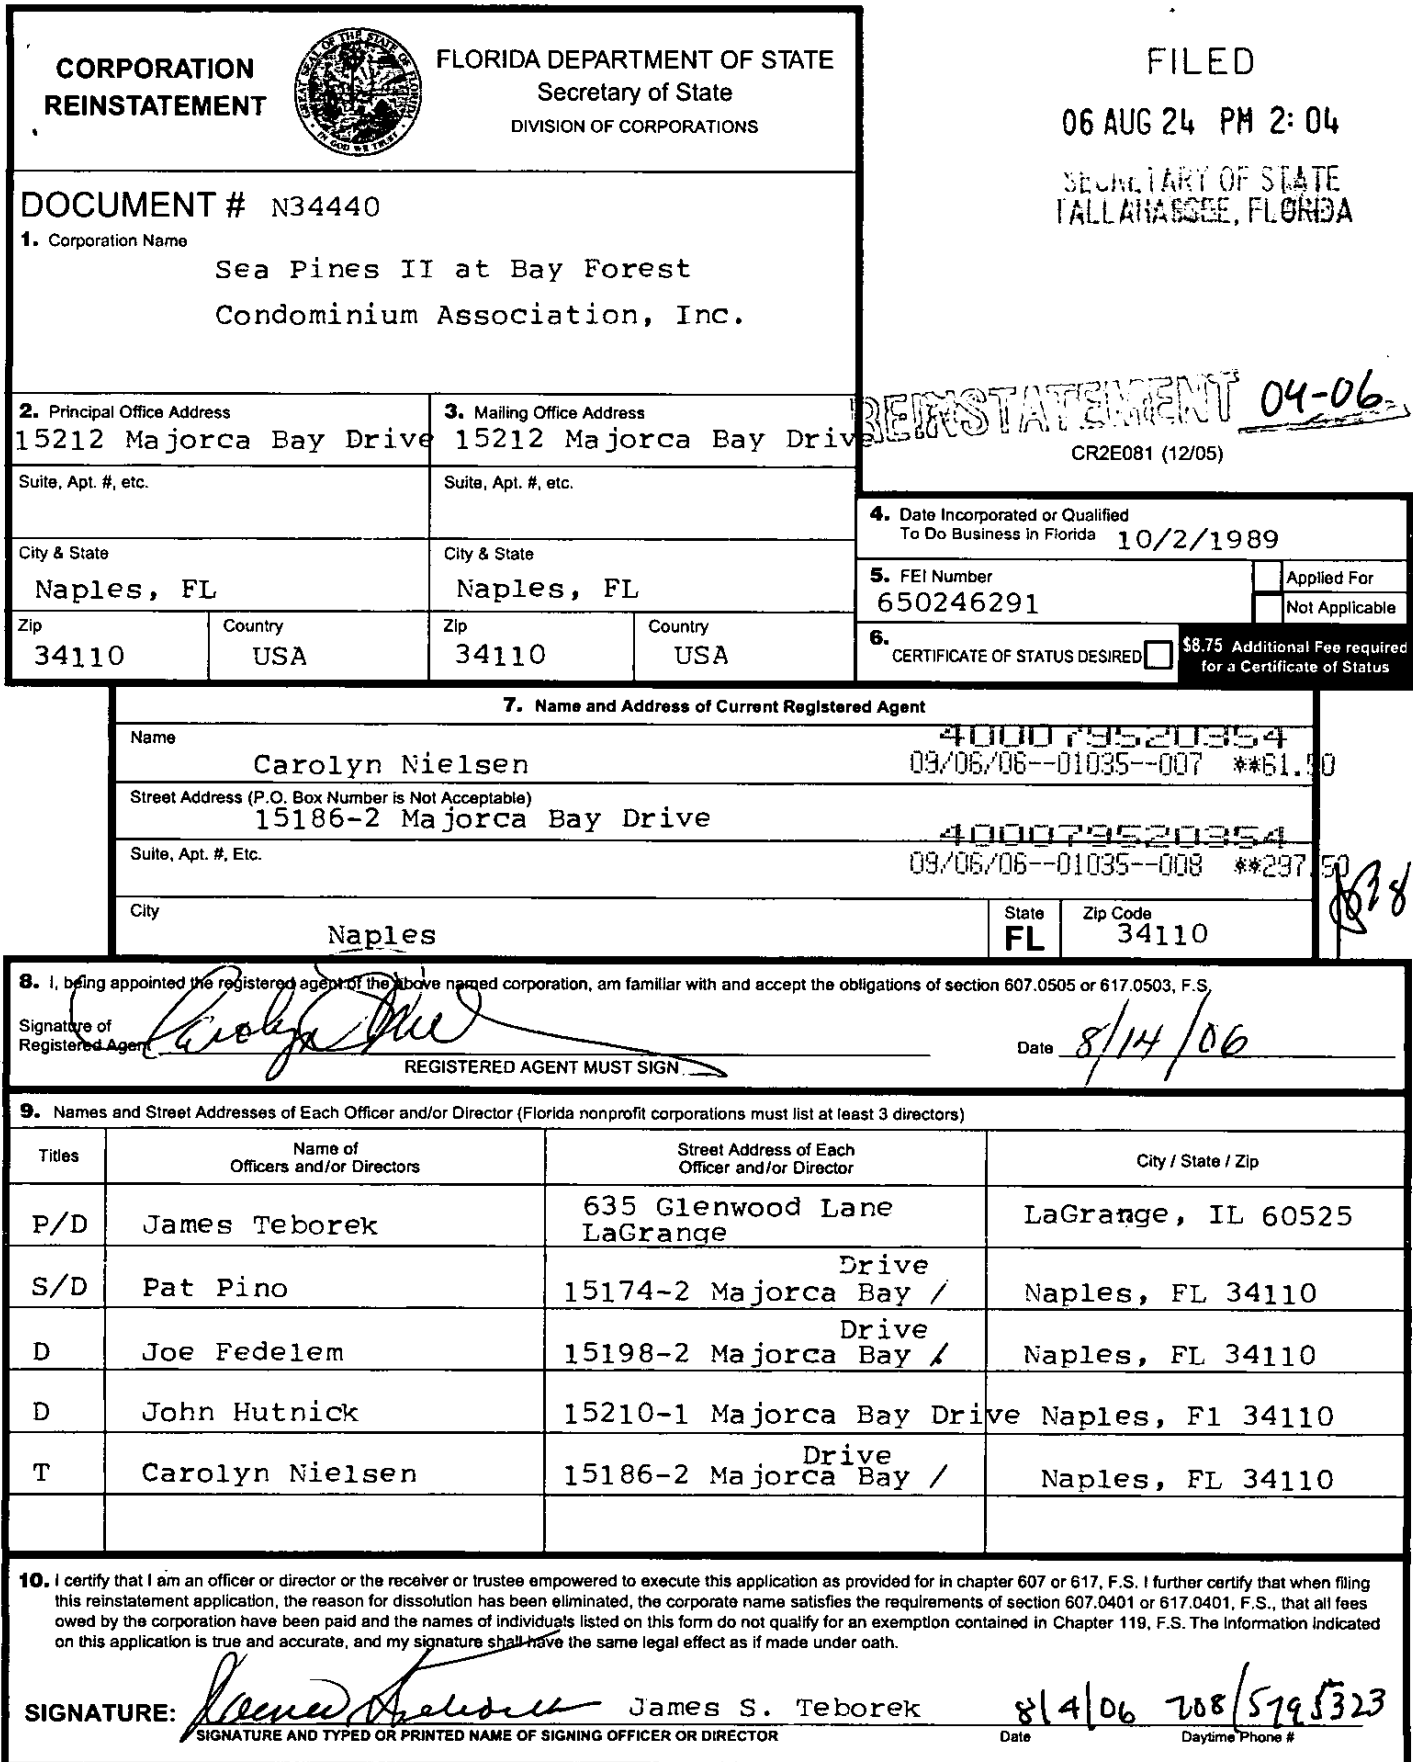 CORPORATION
REINSTATEMENT
GREAT SEAL OF THE STATE OF FLORIDA
IN GOD WE TRUST
FLORIDA DEPARTMENT OF STATE
Secretary of State
DIVISION OF CORPORATIONS
FILED
06 AUG 24 PM 2:04
SECRETARY OF STATE
TALLAHASSEE, FLORIDA
DOCUMENT # N34440
1. Corporation Name
Sea Pines II at Bay Forest
Condominium Association, Inc.
REINSTATEMENT 04-06
CR2E081 (12/05)
2. Principal Office Address
15212 Majorca Bay Drive
3. Mailing Office Address
15212 Majorca Bay Drive
Suite, Apt. #, etc.
Suite, Apt. #, etc.
City & State
Naples, FL
City & State
Naples, FL
Zip
34110
Country
USA
Zip
34110
Country
USA
4. Date Incorporated or Qualified
To Do Business in Florida 10/2/1989
5. FEI Number
650246291
Applied For
Not Applicable
6.
CERTIFICATE OF STATUS DESIRED
$8.75 Additional Fee required
for a Certificate of Status
7. Name and Address of Current Registered Agent
Name
Carolyn Nielsen
400079520354
09/06/06--01035--007 **61.50
Street Address (P.O. Box Number is Not Acceptable)
15186-2 Majorca Bay Drive
400079520354
09/06/06--01035--008 **297.50
Suite, Apt. #, Etc.
City
Naples
State
FL
Zip Code
34110
8. I, being appointed the registered agent of the above named corporation, am familiar with and accept the obligations of section 607.0505 or 617.0503, F.S.
Signature of
Registered Agent
REGISTERED AGENT MUST SIGN
Date 8/14/06
9. Names and Street Addresses of Each Officer and/or Director (Florida nonprofit corporations must list at least 3 directors)
Titles
Name of
Officers and/or Directors
Street Address of Each
Officer and/or Director
City / State / Zip
P/D
James Teborek
635 Glenwood Lane
LaGrange
LaGrange, IL 60525
S/D
Pat Pino
Drive
15174-2 Majorca Bay /
Naples, FL 34110
D
Joe Fedelem
Drive
15198-2 Majorca Bay /
Naples, FL 34110
D
John Hutnick
15210-1 Majorca Bay Drive
Naples, Fl 34110
T
Carolyn Nielsen
Drive
15186-2 Majorca Bay /
Naples, FL 34110
10. I certify that I am an officer or director or the receiver or trustee empowered to execute this application as provided for in chapter 607 or 617, F.S. I further certify that when filing
this reinstatement application, the reason for dissolution has been eliminated, the corporate name satisfies the requirements of section 607.0401 or 617.0401, F.S., that all fees
owed by the corporation have been paid and the names of individuals listed on this form do not qualify for an exemption contained in Chapter 119, F.S. The information indicated
on this application is true and accurate, and my signature shall have the same legal effect as if made under oath.
SIGNATURE:
James S. Teborek
8/4/06
708/5795323
SIGNATURE AND TYPED OR PRINTED NAME OF SIGNING OFFICER OR DIRECTOR
Date
Daytime Phone #